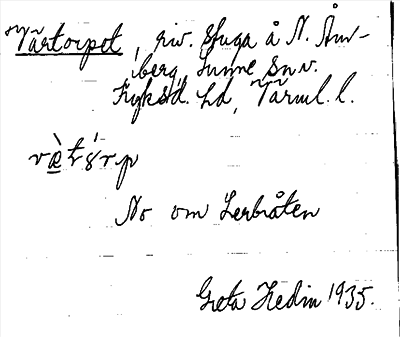 Vårtorpet, riv. stuga å N. Åm-
berg, Sunne sn.
Fryksd. hd, Värml. l.
No om Lerbråten
Greta Hedin 1935.